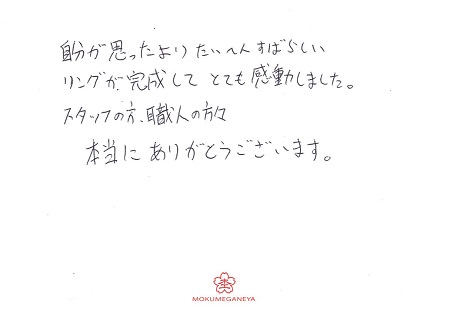 自分が思ったよりたいへんすばらしい
リングが完成してとても感動しました。
スタッフの方、職人の方々
本当にありがとうございます。
MOKUMEGANEYA